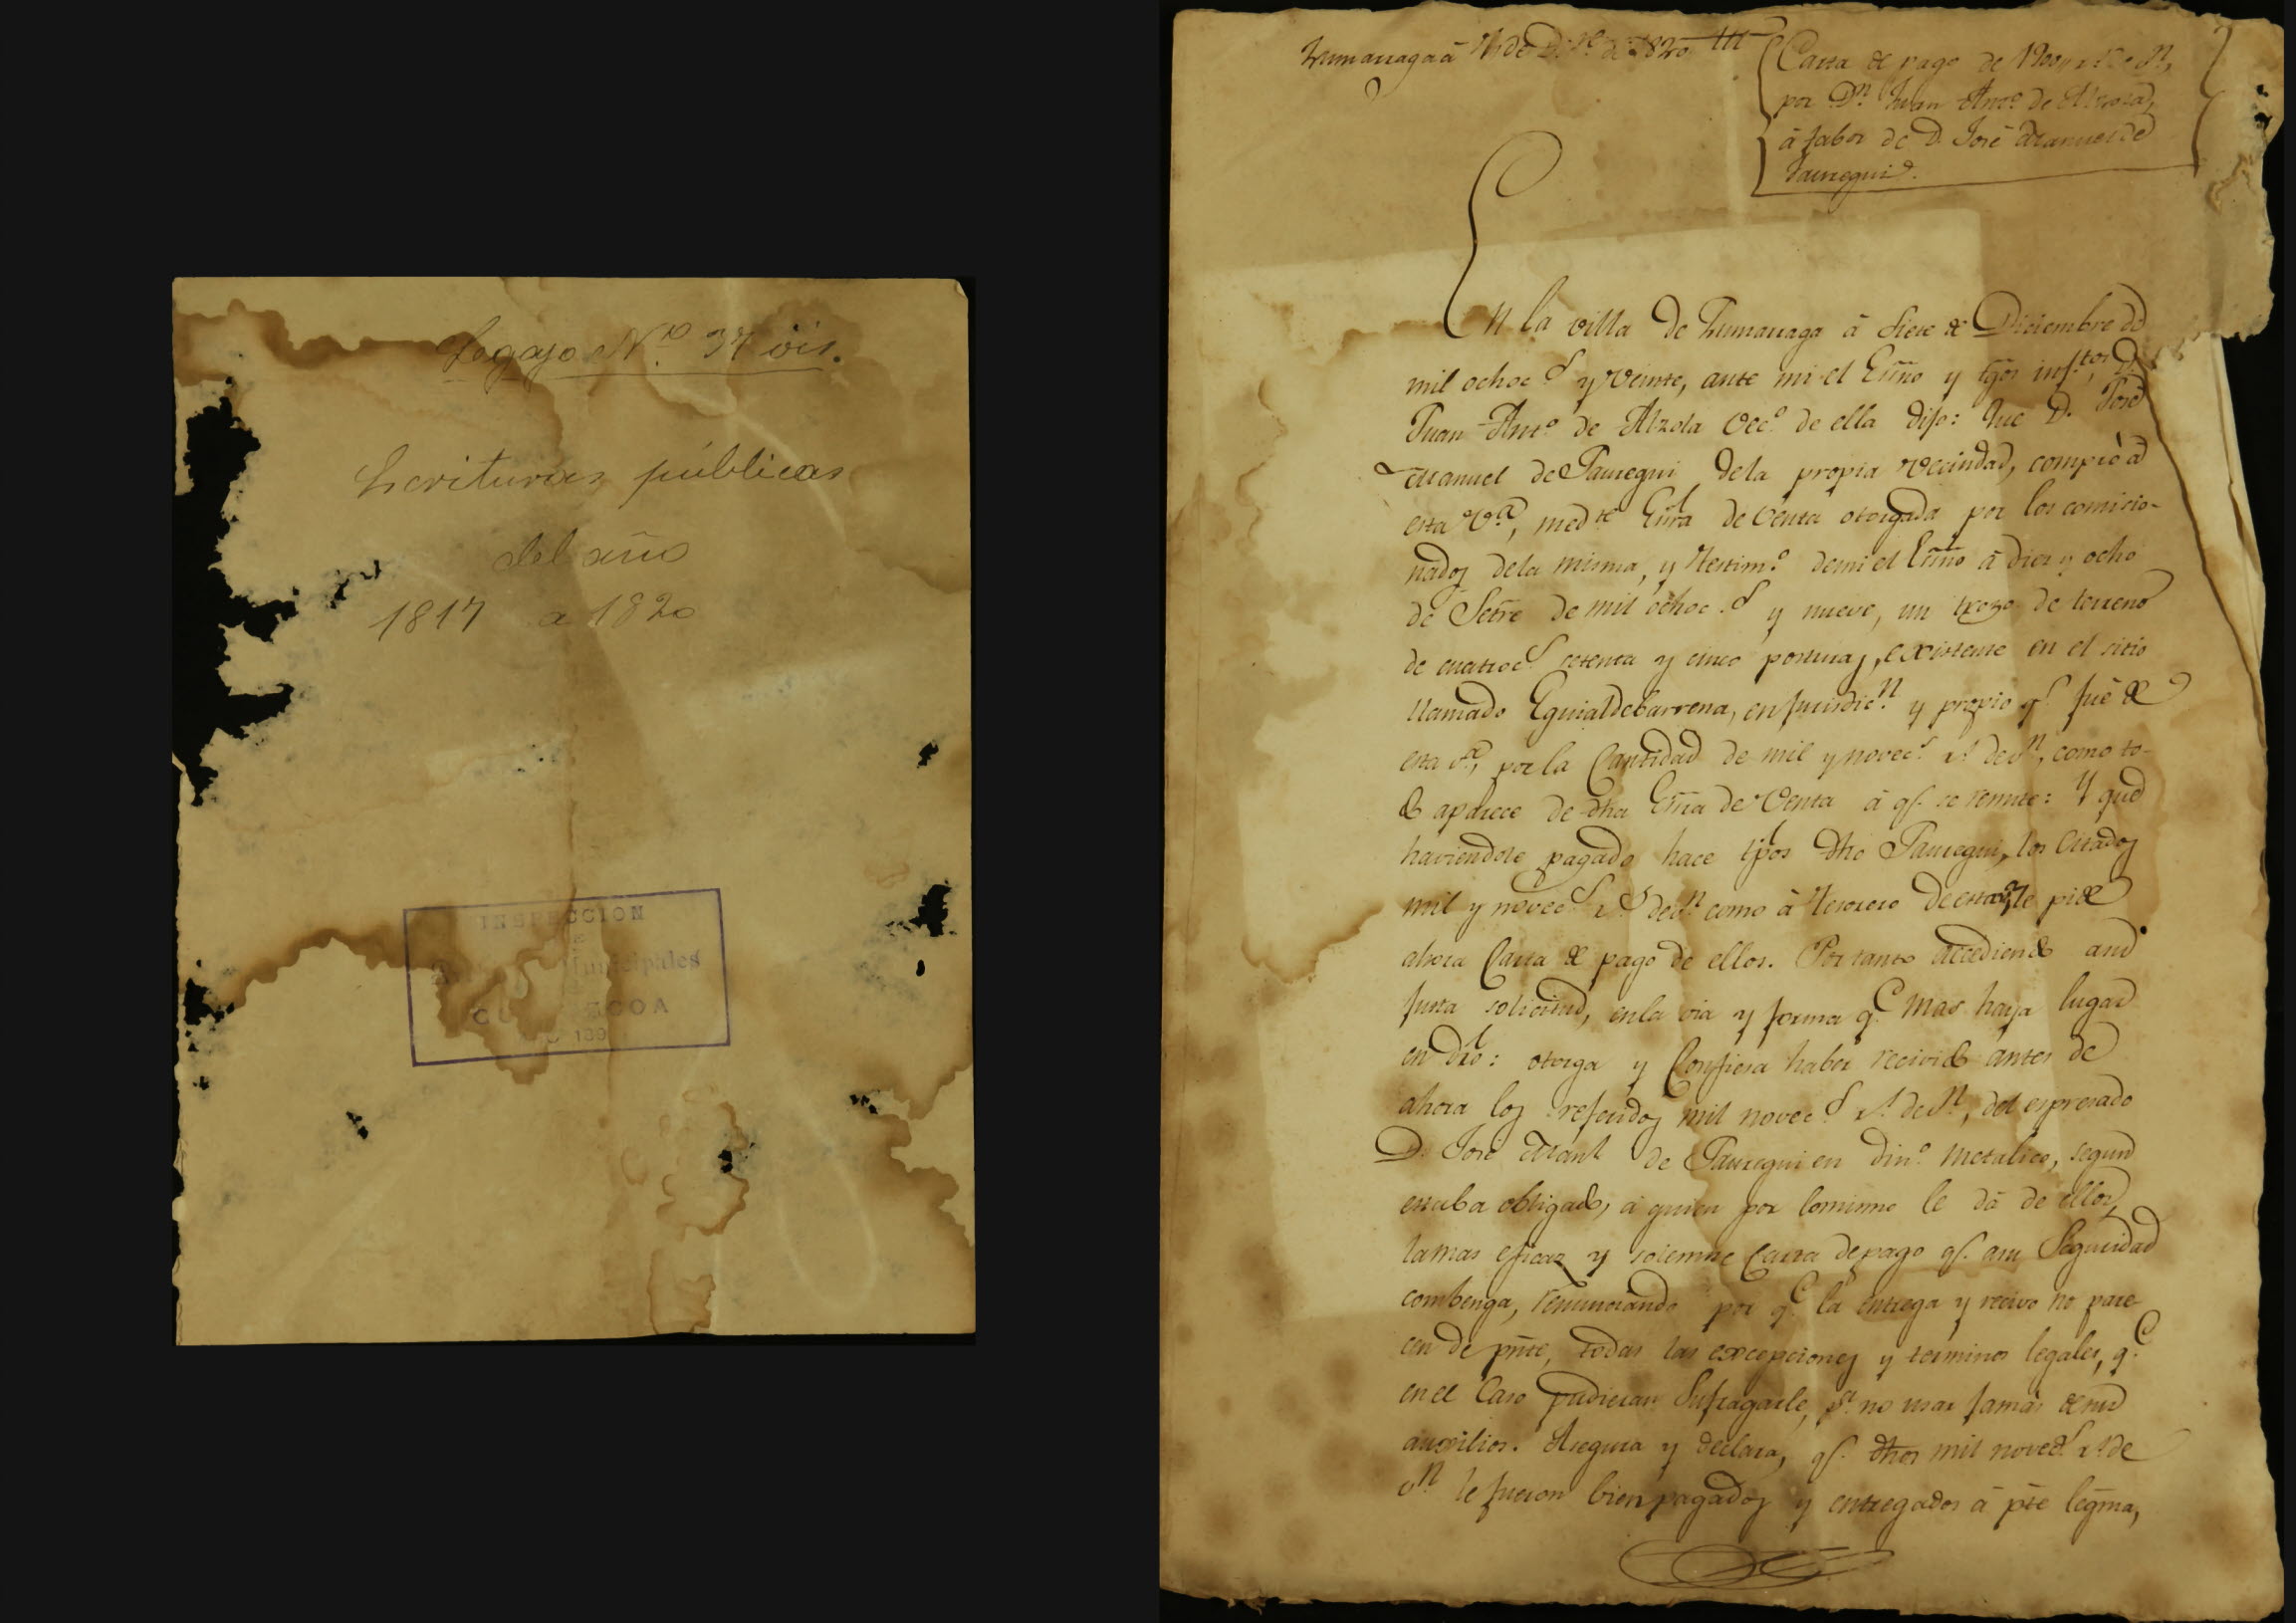 Legajo Nº 37 bis.
Escrituras públicas
del año
1817 a 1820
INSPECCION
Municipales
Zumarraga á 7 de D.re de 1820
Carta de pago de 1900 r.s de v.n,
por D.n Juan Ant.o de Alzola,
á fabor de D. José Manuel de
Jauregui.
En la villa de Zumarraga á siete de Diciembre de
mil ochoc.s y veinte, ante mi el Essño y tgos inf.tos D.
Juan Ant.o de Alzola vec.o de ella dijo: Que D. José
Manuel de Jauregui de la propia vecindad, compró á
esta V.a, med.te Essra de venta otorgada por los comisio-
nados de la misma, y testim.o de mi el Essño á diez y ocho
de Setre de mil ochoc.s y nueve, un trozo de terreno
de quatroc.s setenta y cinco posturas, existente en el sitio
llamado Eguialdebarrena, en jurisdic.n y propio q.e fué de
esta V.a, por la Cantidad de mil y novec.s r.s de v.n, como to-
do aparece de dha Essra de Venta á q.e se remite: Y que
haviendole pagado hace tpos dho Jauregui, los Citados
mil y novec.s r.s de v.n como á tesorero de esta V.a, le pide
ahora Carta de pago de ellos. Por tanto accediendo á su
justa solicitud, en la via y forma q.e mas haya lugar
en dro: otorga y Confiesa haber recivido antes de
ahora los referidos mil novec.s r.s de v.n, del espresado
D. José Man.l de Jauregui en din.o metalico, segun
estaba obligado, á quien por lo mismo le dá de ellos,
la mas eficaz y solemne Carta de pago q.e á su Seguridad
combenga, renunciando por q.e la entrega y recivo no pare-
cen de pnte, todas las excepciones y terminos legales, q.e
en el Caso pudieran Sufragarle, p.a no usar jamás de su
auxilios. Asegura y declara, q.e dhos mil novec.s r.s de
v.n le fueron bien pagados y entregados á pte legma,